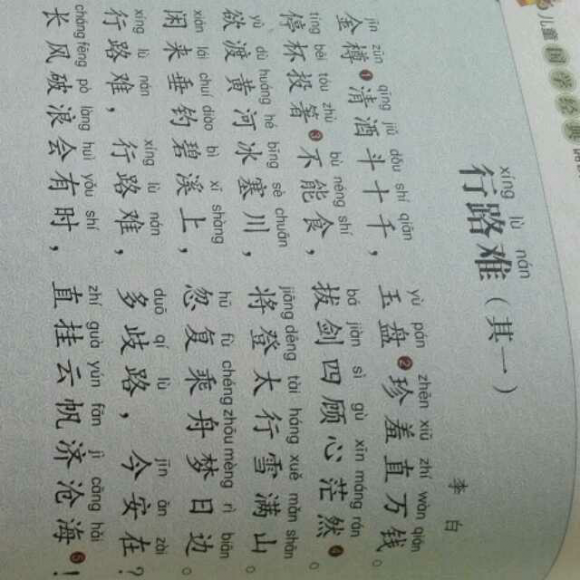 儿童国学经典
xíng lù nán
行路难（其一）
李白
jīn zūn qīng jiǔ dǒu shí qiān yù pán zhēn xiū zhí wàn qián
金樽❶清酒斗十千，玉盘❷珍羞直万钱。
tíng bēi tóu zhù bù néng shí bá jiàn sì gù xīn máng rán
停杯投箸❸不能食，拔剑四顾心茫然❹。
yù dù huáng hé bīng sè chuān jiāng dēng tài háng xuě mǎn shān
欲渡黄河冰塞川，将登太行雪满山。
xián lái chuí diào bì xī shàng hū fù chéng zhōu mèng rì biān
闲来垂钓碧溪上，忽复乘舟梦日边。
xíng lù nán xíng lù nán duō qí lù jīn ān zài
行路难，行路难，多歧路，今安在？
cháng fēng pò làng huì yǒu shí zhí guà yún fān jì cāng hǎi
长风破浪会有时，直挂云帆济沧海❺！